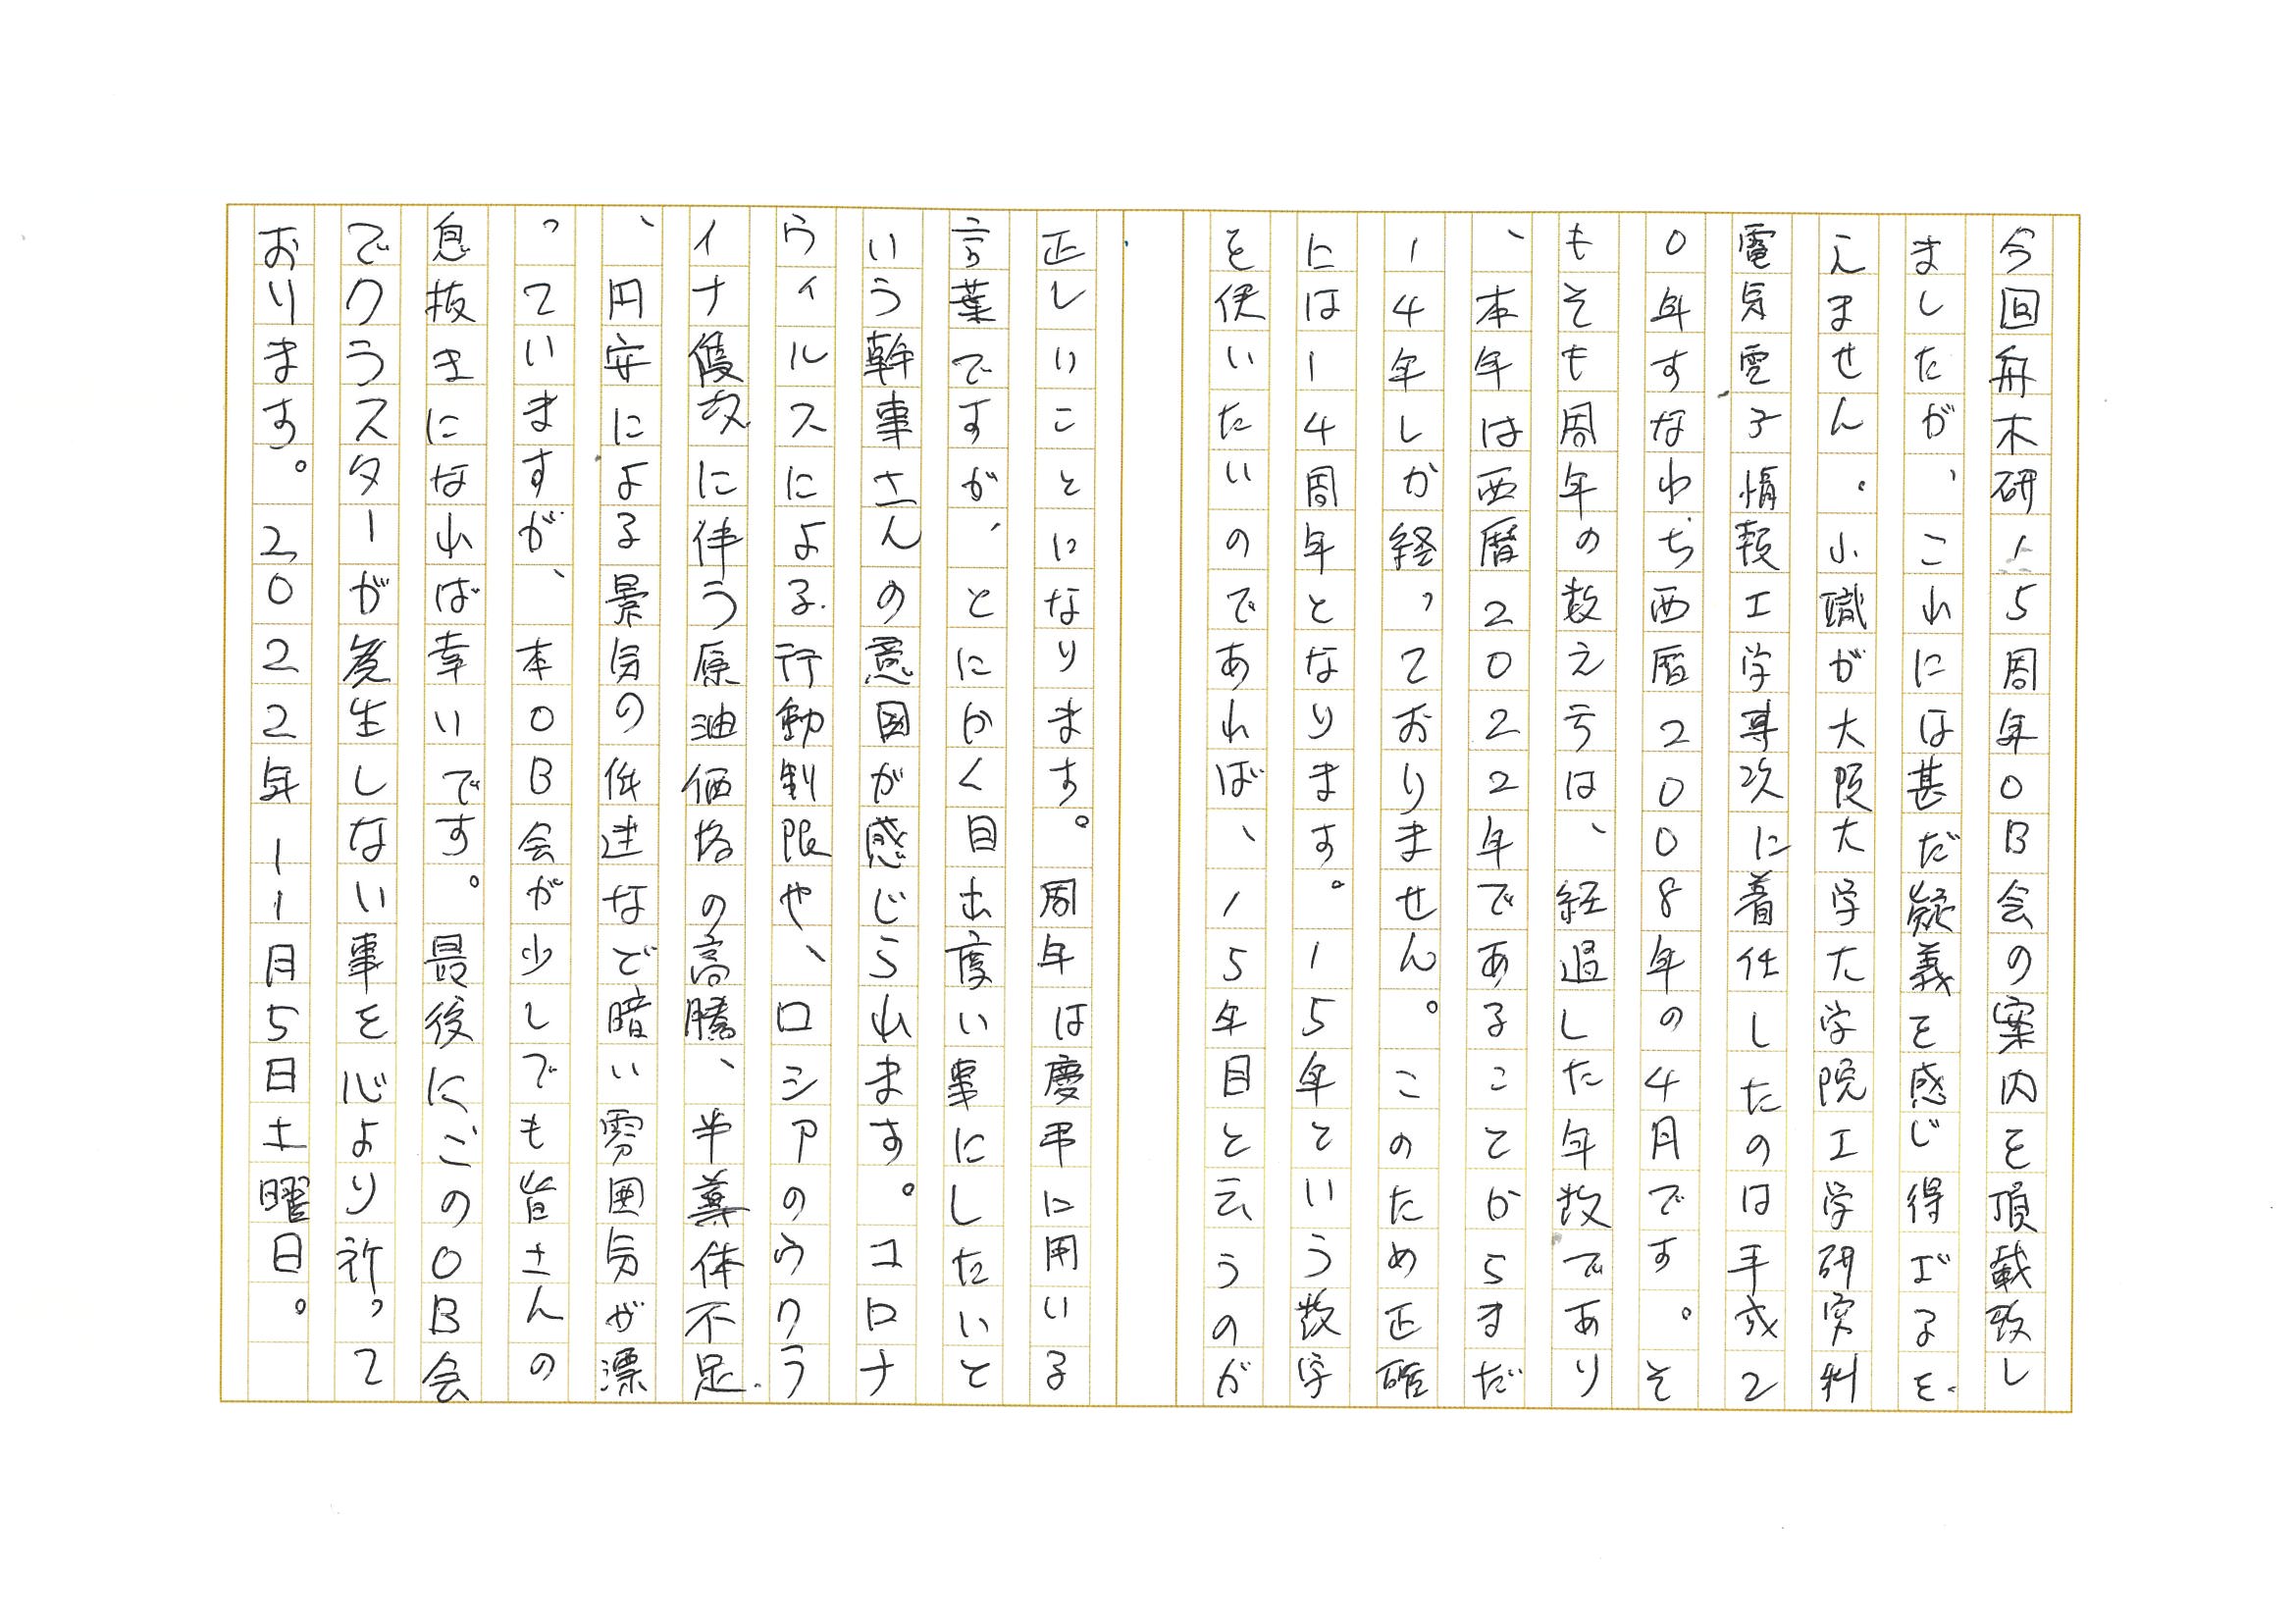 今回舟木研15周年OB会の案内を頂戴致し
ましたが、これには甚だ疑義を感じ得ざるを
えません。小職が大阪大学大学院工学研究科
電気電子情報工学専攻に着任したのは平成2
0年すなわち西暦2008年の4月です。そ
もそも周年の数え方は、経過した年数であり
、本年は西暦2022年であることからまだ
14年しか経っておりません。このため正確
には14周年となります。15年という数字
を使いたいのであれば、15年目と云うのが
正しいことになります。周年は慶弔に用いる
言葉ですが、とにかく目出度い事にしたいと
いう幹事さんの意図が感じられます。コロナ
ウィルスによる行動制限や、ロシアのウクラ
イナ侵攻に伴う原油価格の高騰、半導体不足
、円安による景気の低迷などで暗い雰囲気が漂
っていますが、本OB会が少しでも皆さんの
息抜きになれば幸いです。最後にこのOB会
でクラスターが発生しない事を心より祈って
おります。2022年11月5日土曜日。